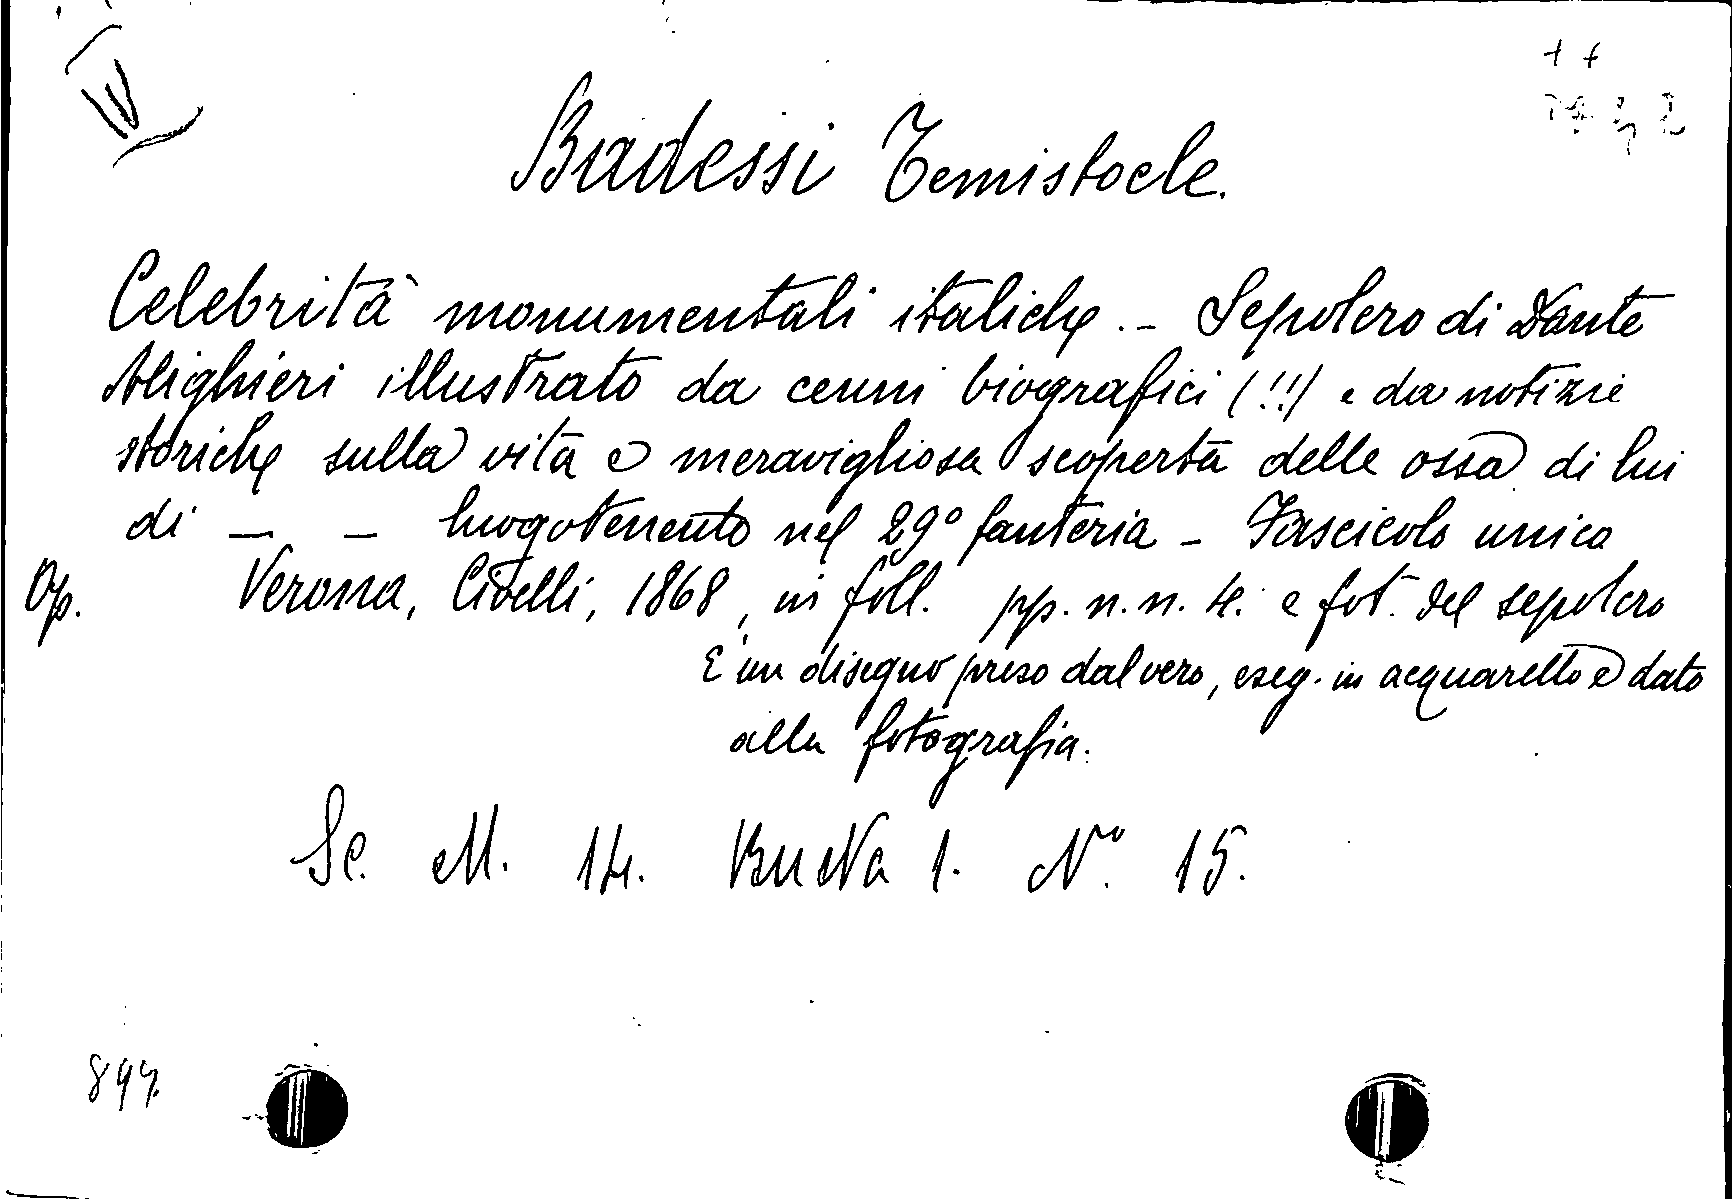 IV
Badessi Temistocle.
Celebrità monumentali italiche. - Sepolcro di Dante
Alighieri illustrato da cenni biografici (!!) e da notizie
storiche sulla vita e meravigliosa scoperta delle ossa di lui
di — — luogotenente nel 29° fanteria - Fascicolo unico
Op. Verona, Civelli, 1868, in foll. pp. n. n. 4. e fot. del sepolcro
E' un disegno preso dal vero, eseg. in acquarello e dato
alla fotografia.
Sc. M. 14. Busta 1. N° 15.